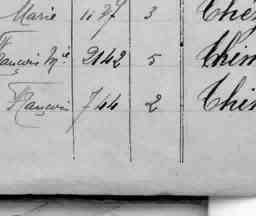 Marie 1137 3 Thé
François Mie 2142 5 Thim
François 744 2 Thi